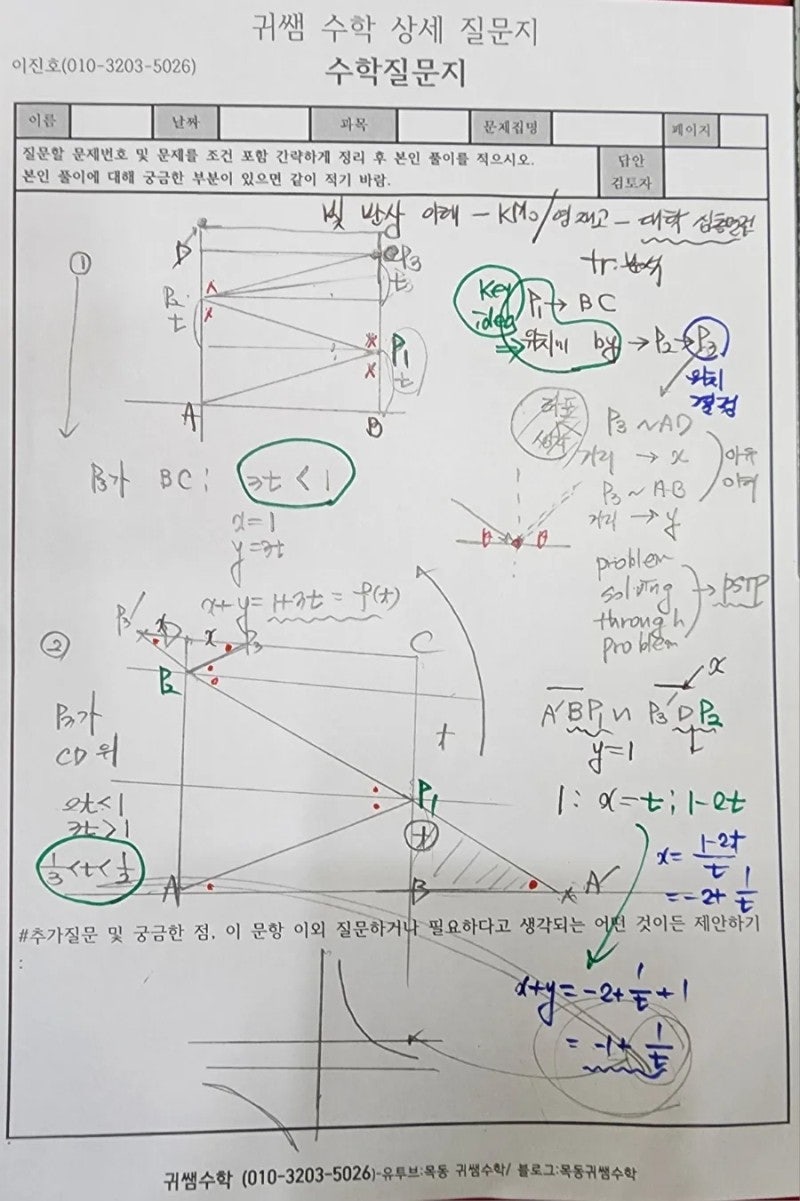 귀쌤 수학 상세 질문지
이진호(010-3203-5026)
수학질문지
이름 날짜 과목 문제집명 페이지
질문할 문제번호 및 문제를 조건 포함 간략하게 정리 후 본인 풀이를 적으시오.
본인 풀이에 대해 궁금한 부분이 있으면 같이 적기 바람.
답안
검토자
빛 반사 아래 - KMO/영재고 - 대학 심층면접
①
D
C
P₃
t
P₂
t
P₁
t
A
B
Key
idea
P₁ → BC
위치에 by → P₂ → P₃
위치
결정
좌표
생각
P₃ ~ AD
거리 → x
P₃ ~ AB
거리 → y
P₃가 BC : 3t < 1
x = 1
y = 3t
x+y = 1+3t = f(t)
θ θ
problem
solving
through
problem
→ PSTP
②
P₃′ x D x P₃
C
P₂
P₃가
CD 위
2t<1
3t>1
1/3 < t < 1/2
t
P₁
t
A
B
A′
A′BP₁ ∽ P₃′DP₂
x
y=1
1 : x = t ; 1-2t
x = (1-2t)/t
= -2+ 1/t
#추가질문 및 궁금한 점, 이 문항 이외 질문하거나 필요하다고 생각되는 어떤 것이든 제안하기
:
x+y = -2+ 1/t +1
= -1+ 1/t
귀쌤수학 (010-3203-5026)-유투브:목동 귀쌤수학/ 블로그:목동귀쌤수학